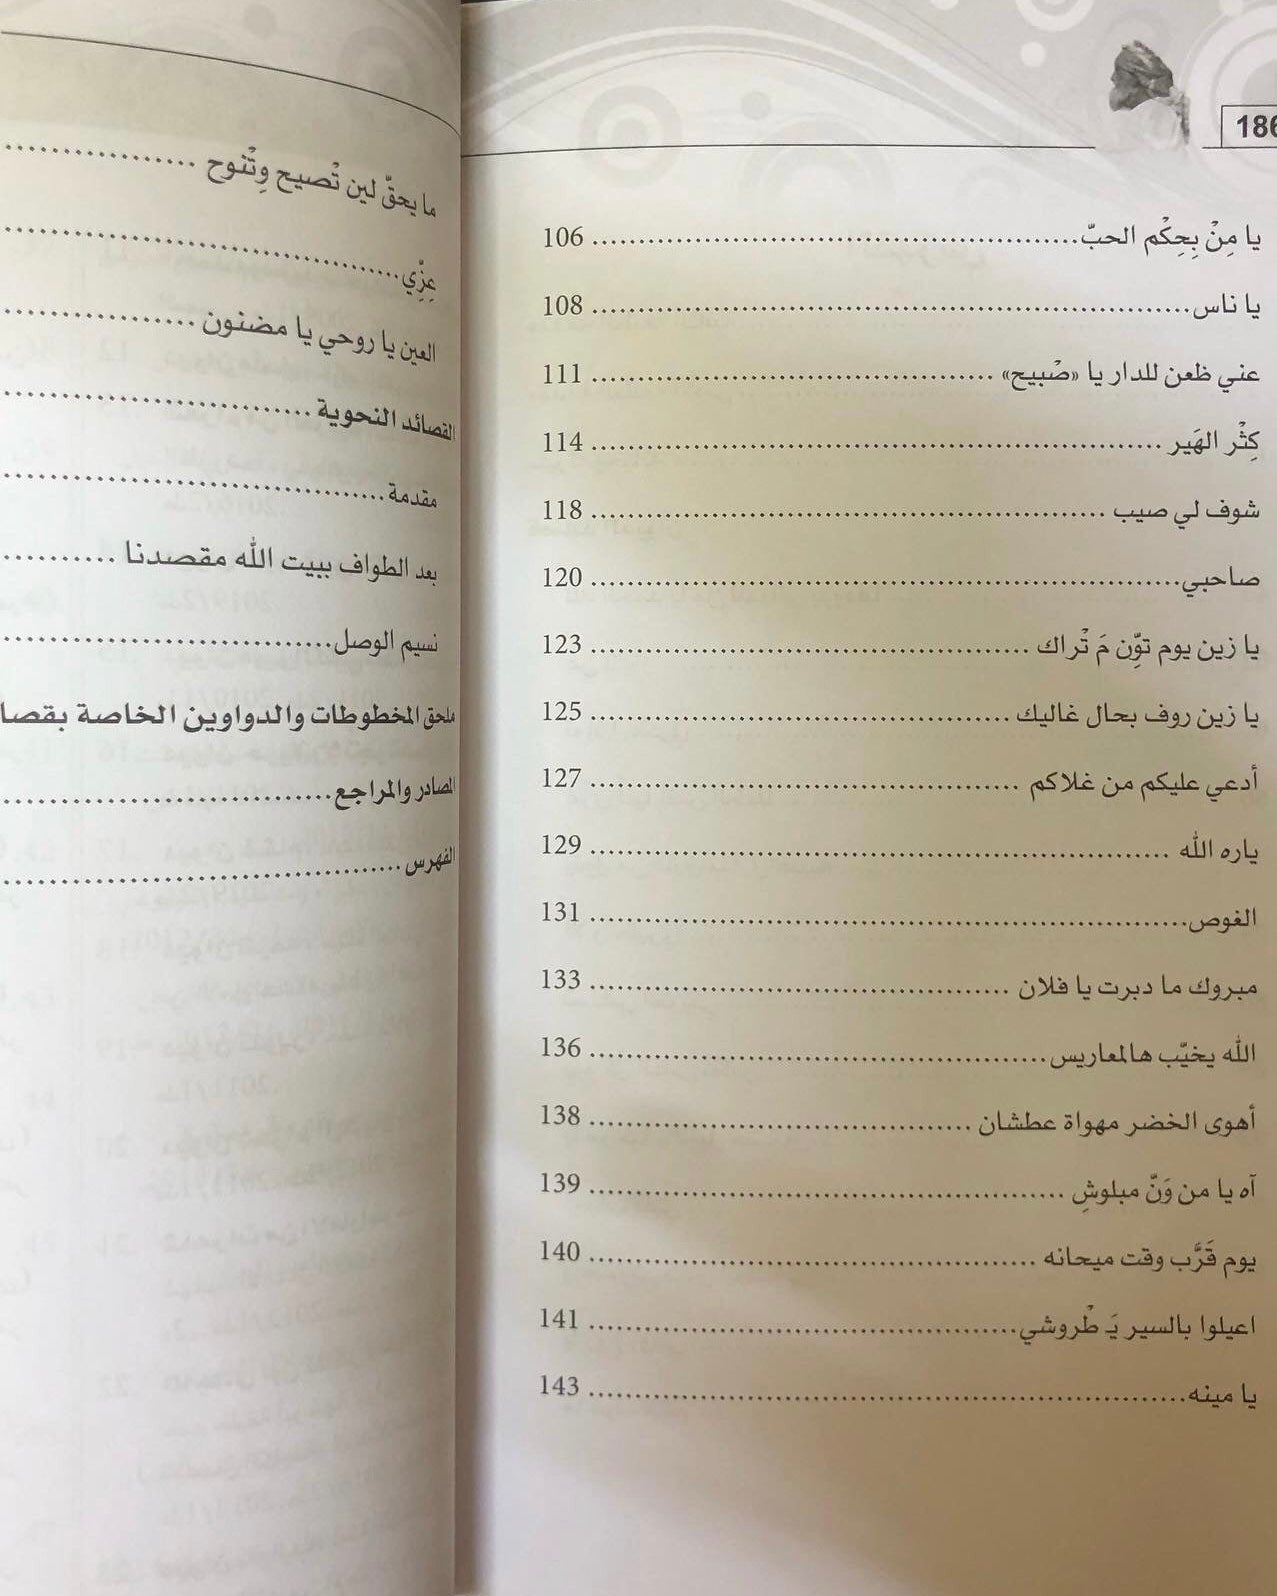 186
يا مِنْ بِحِكْم الحبّ ........ 106
يا ناس ........ 108
عني ظعن للدار يا «صْبيح» ........ 111
كِثْر الهَير ........ 114
شوف لي صيب ........ 118
صاحبي ........ 120
يا زين يوم توِّن مَ تْراك ........ 123
يا زين روف بحال غاليك ........ 125
أدعي عليكم من غلاكم ........ 127
ياره الله ........ 129
الغوص ........ 131
مبروك ما دبرت يا فلان ........ 133
الله يخيّب هالمعاريس ........ 136
أهوى الخضر مهواة عطشان ........ 138
آه يا من وَنّ مبلوشِ ........ 139
يوم قَرَّب وقت ميحانه ........ 140
اعيلوا بالسير يَـ طْروشي ........ 141
يا مينه ........ 143
ما يحقّ لين تْصيح وِتْنوح ........
عِزِّي ........
العين يا روحي يا مضنون ........
القصائد النحوية ........
مقدمة ........
بعد الطواف ببيت الله مقصدنا ........
نسيم الوصل ........
ملحق المخطوطات والدواوين الخاصة
المصادر والمراجع ........
الفهرس ........